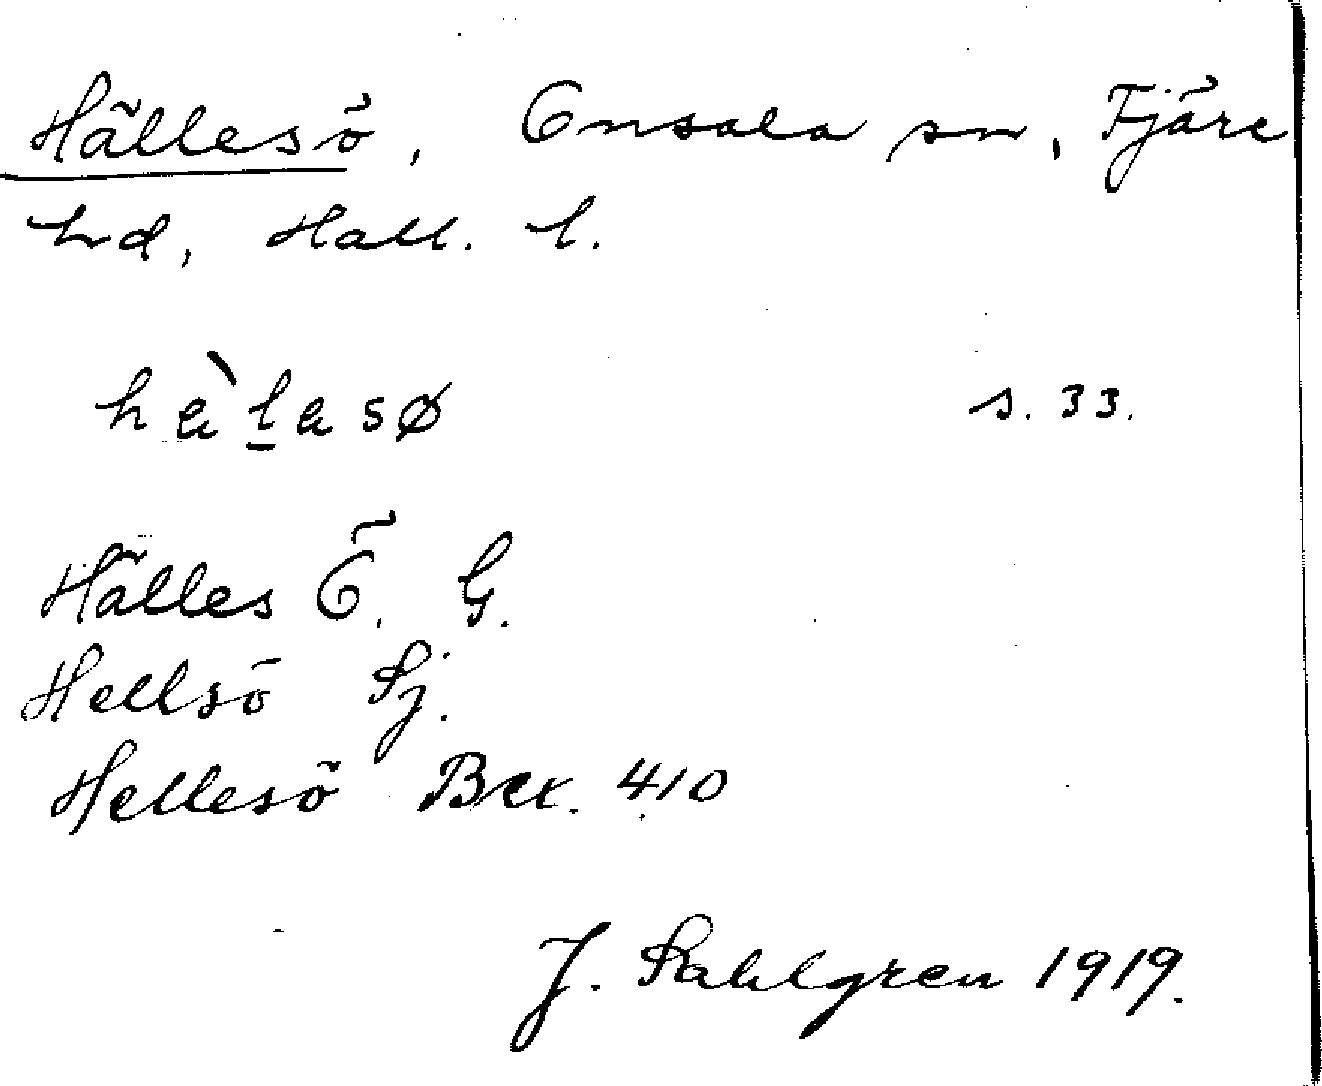 Hällesö, Onsala sn, Fjäre
hd, Hall. l.
hàlasø s. 33.
Hälles Ö, G.
Hellsö Sj.
Hellesö Bex. 410
J. Sahlgren 1919.